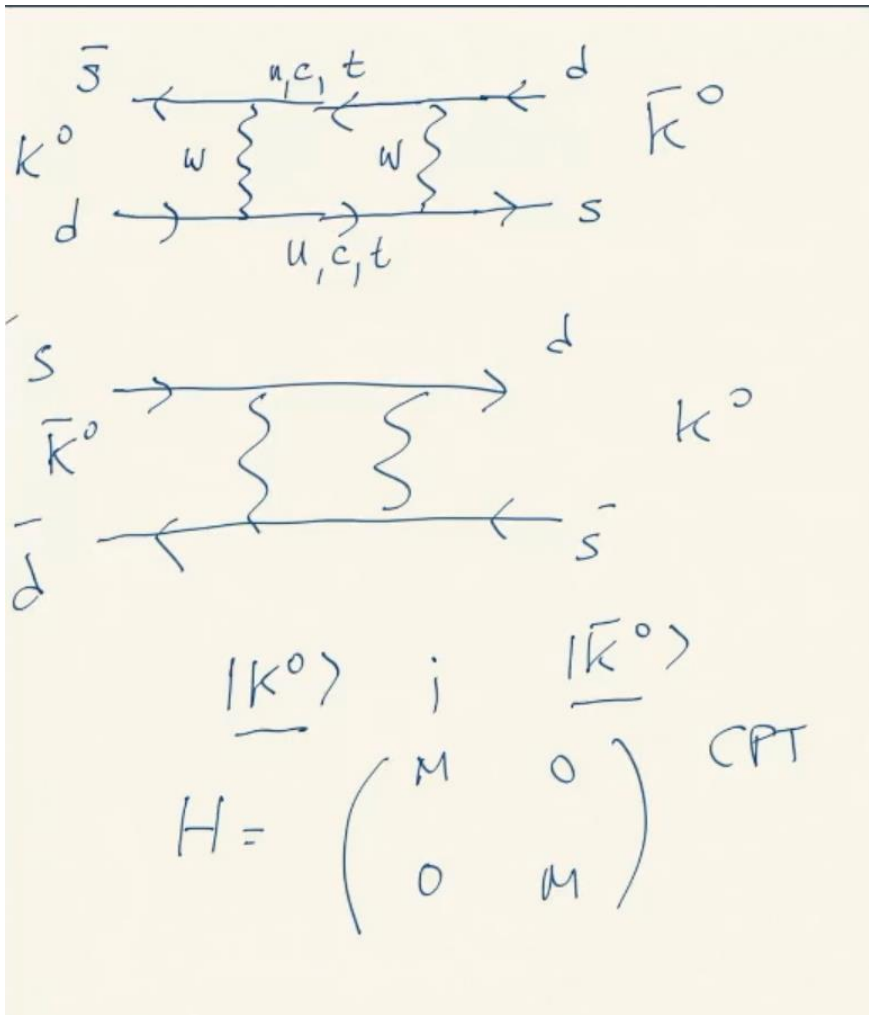 s̄ u,c,t d
k⁰ w w k̄⁰
d s
u,c,t
s d
k̄⁰ k⁰
d̄ s̄
|k⁰⟩ j |k̄⁰⟩
H = ( M 0 ) CPT
0 M